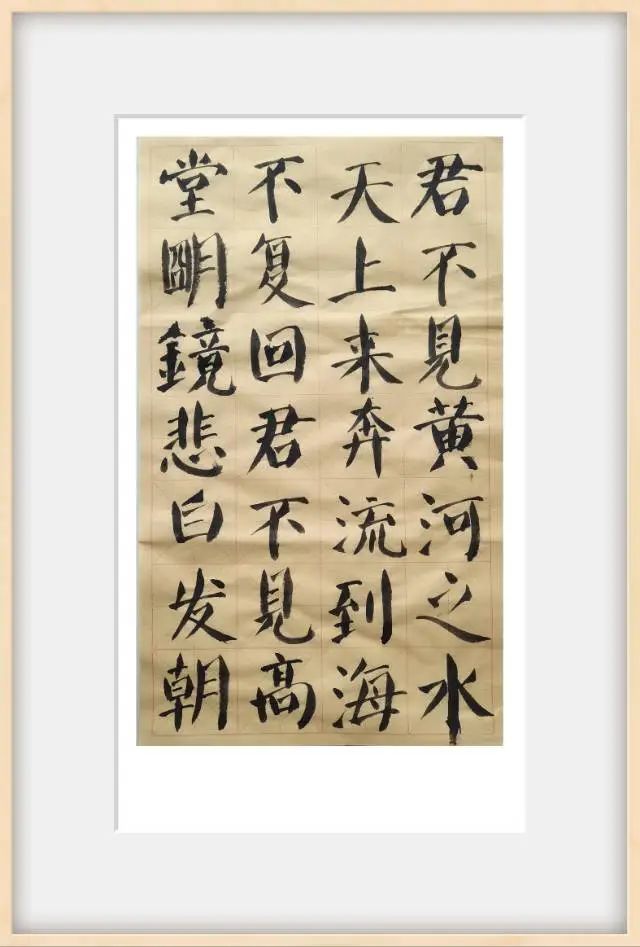 君不見黄河之水
天上来奔流到海
不复回君不見髙
堂朙鏡悲白发朝